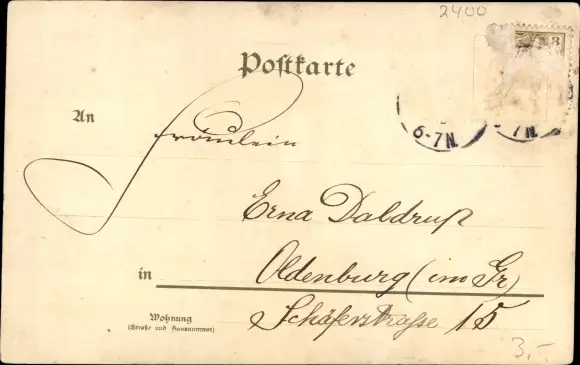 2400
3
Postkarte
6-7N.
7N.
An
Fräulein
Erna Daldrup
in Oldenburg (im Gr)
Schäferstrasse 15
Wohnung
(Straße und Hausnummer)
3,-